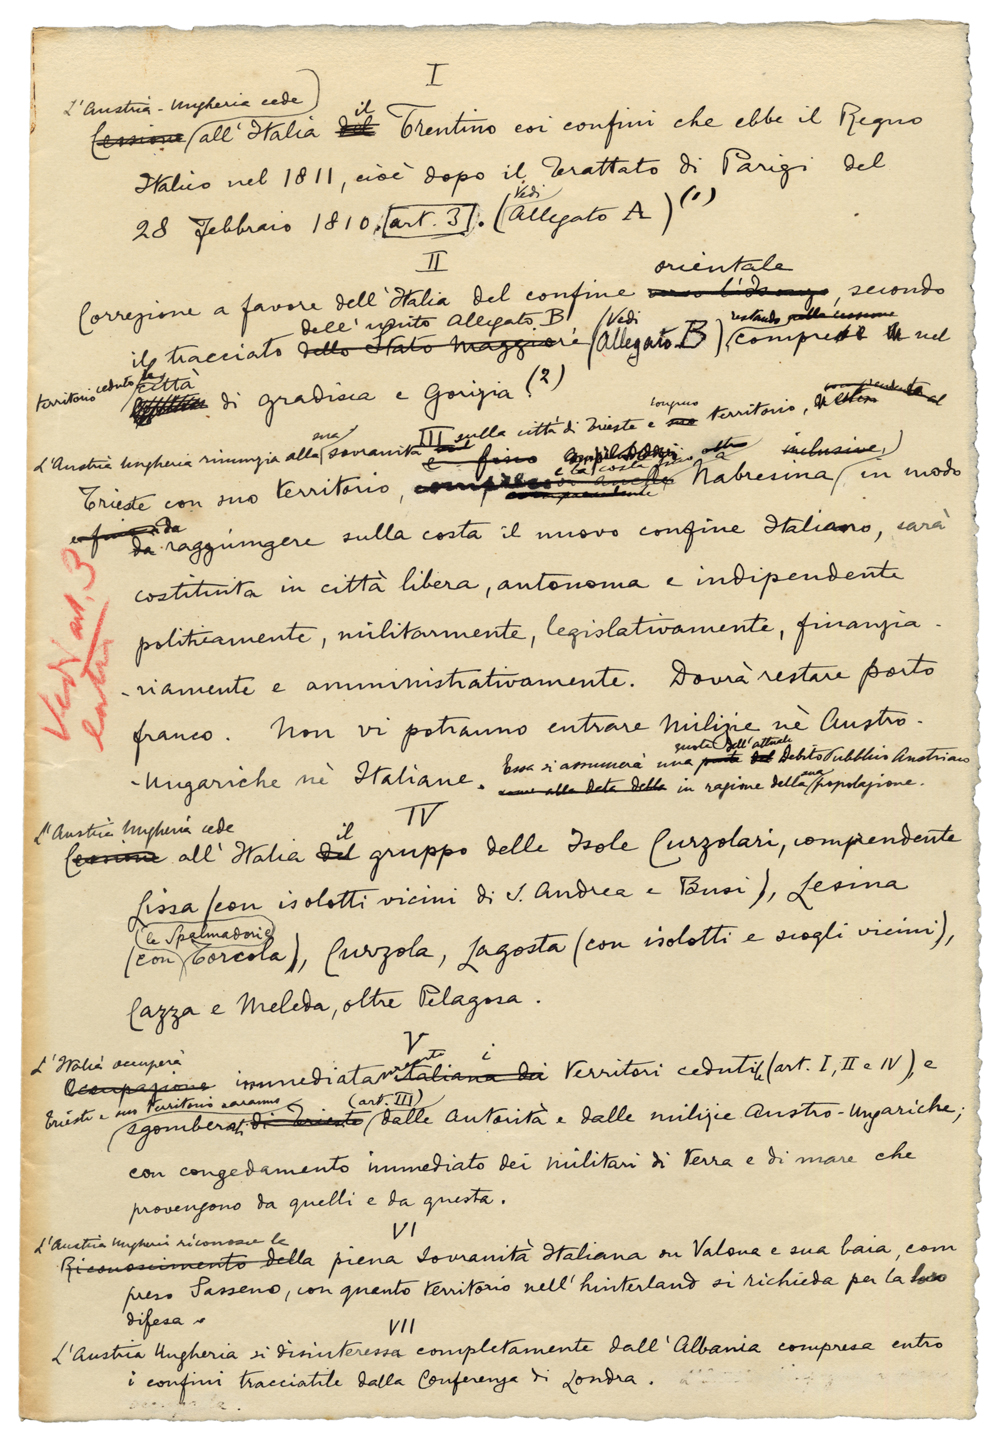 I
L'Austria-Ungheria cede
Cessione all'Italia del il Trentino coi confini che ebbe il Regno
Italico nel 1811, cioè dopo il Trattato di Parigi del
28 Febbraio 1810. [art. 3]. (Vedi Allegato A) (1)
II
orientale
Correzione a favore dell'Italia del confine verso l'Isonzo, secondo
dell'unito Allegato B (Vedi restando nella cessione
il tracciato dello Stato Maggiore (Allegato B), comprese nel
territorio ceduto le città
di Gradisca e Gorizia. (2)
III sulla città di Trieste e suo territorio,
L'Austria Ungheria rinunzia alla sua sovranità
e la costa fino a inclusive,
Trieste con suo territorio, Nabresina in modo
da
da raggiungere sulla costa il nuovo confine Italiano, sarà
costituita in città libera, autonoma e indipendente
politicamente, militarmente, legislativamente, finanzia-
-riamente e amministrativamente. Dovrà restare porto
franco. Non vi potranno entrare Milizie nè Austro-
quota dell'attuale
-Ungariche nè Italiane. Essa si assumerà una parte del Debito Pubblico Austriaco
come alla data della in ragione della sua popolazione.
Vedi art. 3
entra
IV
L'Austria Ungheria cede il
Cessione all'Italia del gruppo delle Isole Curzolari, comprendente
Lissa (con isolotti vicini di S. Andrea e Busi), Lesina
(le Spalmadori e
(con Torcola), Curzola, Lagosta (con isolotti e scogli vicini),
Cazza e Meleda, oltre Pelagosa.
V
L'Italia occuperà
Occupazione immediatamente italiana dei i Territori ceduti (art. I, II e IV), e
Trieste e suo Territorio saranno (art. III)
sgomberati di Trieste dalle Autorità e dalle milizie Austro-Ungariche;
con congedamento immediato dei militari di terra e di mare che
provengono da quelli e da questa.
VI
L'Austria Ungheria riconosce la
Riconoscimento della piena Sovranità Italiana su Valona e sua baia, com
preso Sasseno, con quanto territorio nell'hinterland si richieda per la loro
difesa.
VII
L'Austria Ungheria si disinteressa completamente dall'Albania compresa entro
i confini tracciatile dalla Conferenza di Londra.